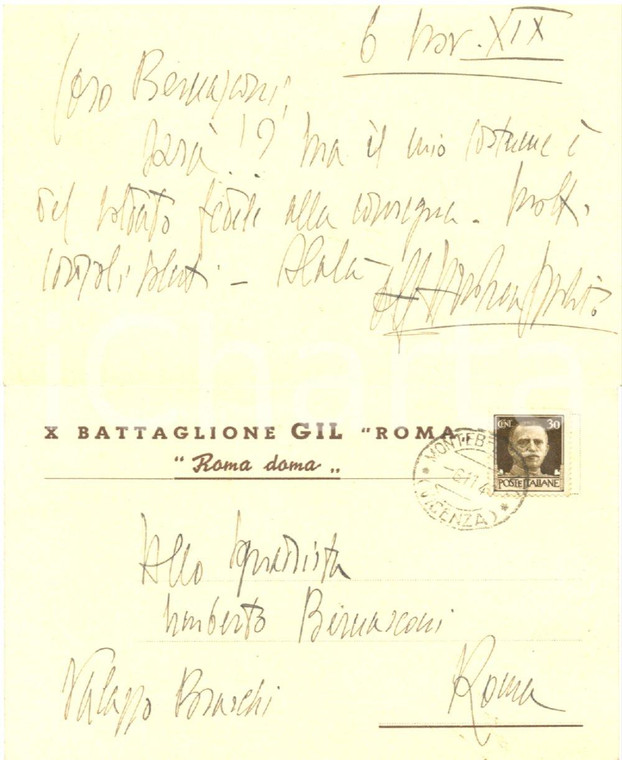 6 Nov. XIX
Caro Bernasconi,
Sarà!? Ma il mio costume è
del soldato fedele alla consegna - Molti
cordiali saluti - Alalà
X BATTAGLIONE GIL "ROMA"
"Roma doma"
CENT 30
POSTE ITALIANE
MONTEB
(VICENZA)
Allo Squadrista
Umberto Bernasconi
Palazzo Braschi
Roma
iCharta